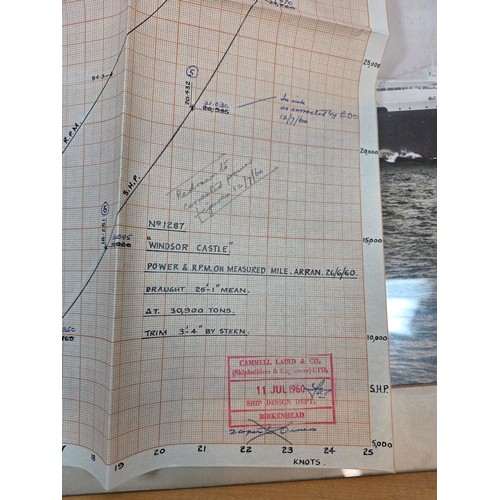 25,000
84·3
R.P.M.
5
20·432
21,230
20,985
In ink
as corrected by EDO
12/7/60
20,000
S.H.P.
Redrawn to
corrected power
figures 12/7/60
6
No 1287.
"WINDSOR CASTLE"
POWER & R.P.M. ON MEASURED MILE. ARRAN. 26/6/60.
DRAUGHT 25'-1" MEAN.
ΔT. 30,900 TONS.
TRIM 3'-4" BY STERN.
15,000
10,000
CAMMELL LAIRD & CO.
(Shipbuilders & Engineers) LTD.
11 JUL 1960
SHIP DESIGN DEPT.
BIRKENHEAD
S.H.P.
5,000
18 19 20 21 22 23 24 25
KNOTS.